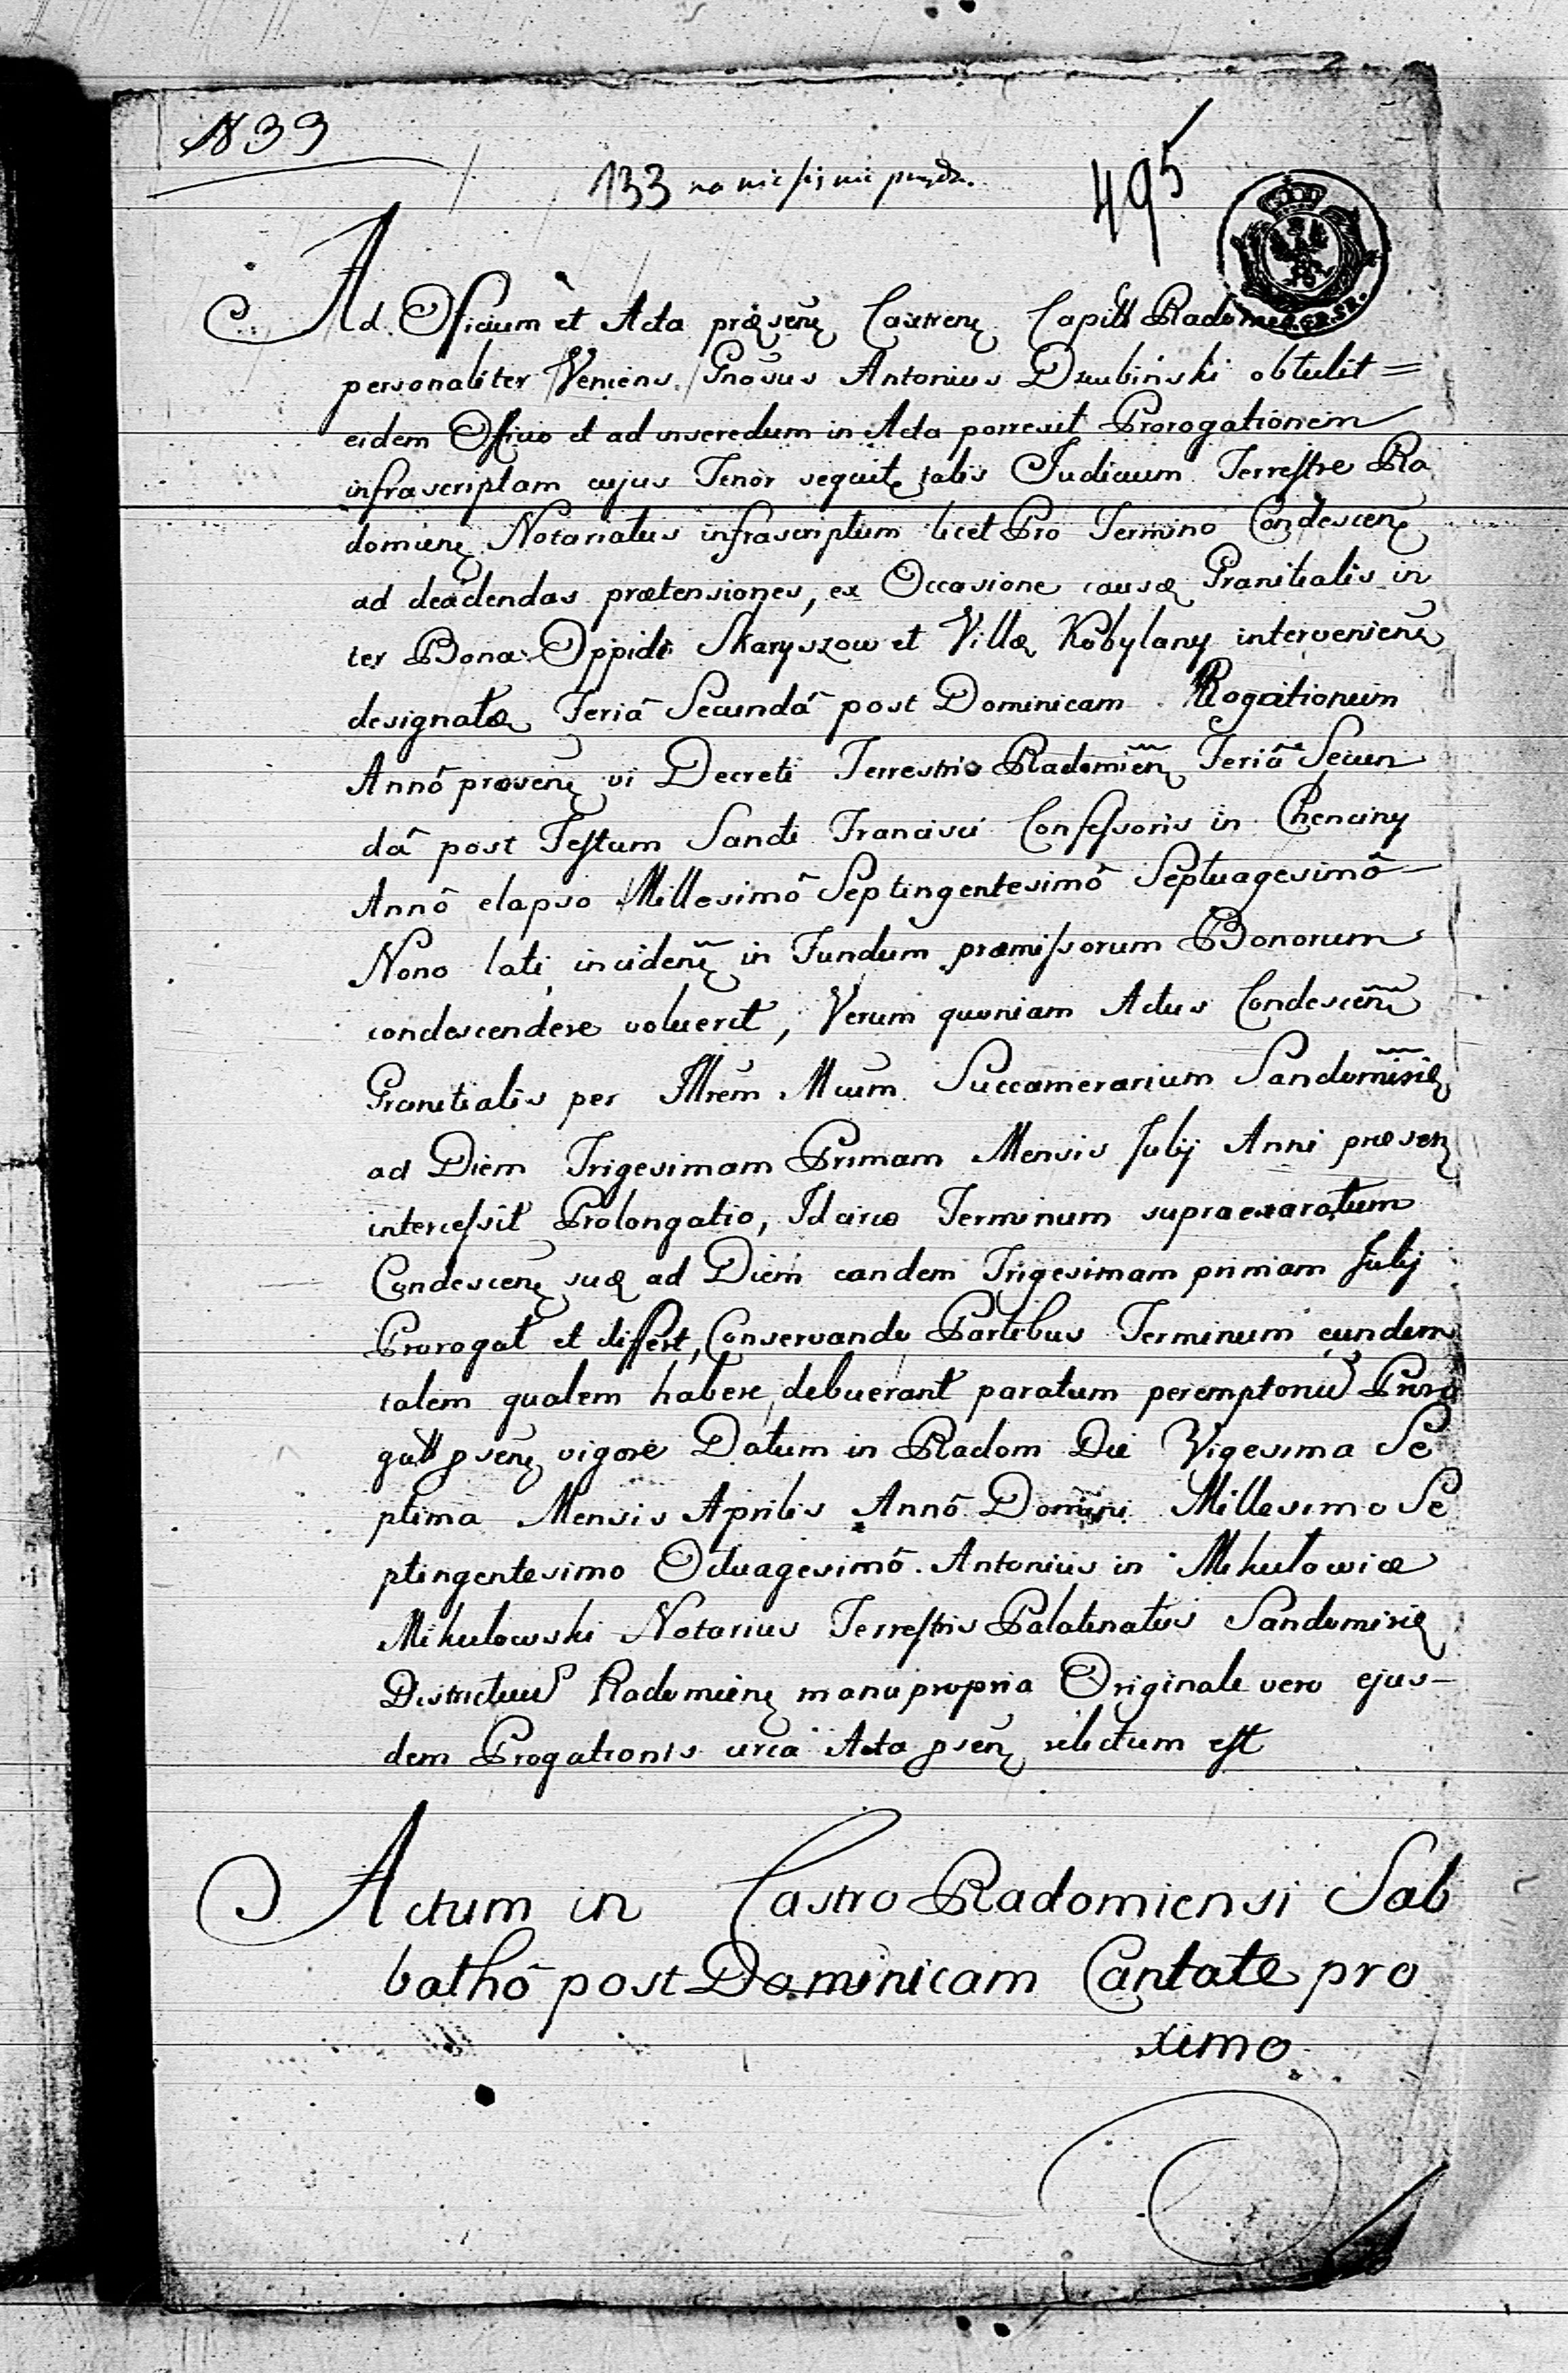 N 39
133 na nic się nie przyda.
495
Ad Officium et Acta præsenʒ Castrenʒ Capitl Radom
personaliter Veniens Gnosus Antonius Dziubinski obtulit =
eidem Officio et ad inseredum in Acta porrexit Prorogationem
infrascriptam cujus Tenor sequitʒ talis Judicium Terrestre Ra
domienʒ Notariatus infrascriptum licet Pro Termino Condescenʒ
ad decidendas prætensiones, ex Occasione causæ Granitialis in
ter Bona Oppidi Skaryszow et Villæ Kobylany intervenienʒ
designatæ Feriâ Secundâ post Dominicam Rogationum
Annô præsenʒ vi Decreti Terrestris Radomienʒ Feriâ Secun
dâ post Festum Sancti Francisci Confessoris in Chenciny
Annô elapso Millesimô Septingentesimô Septuagesimô
Nono lati incidenʒ in Fundum præmissorum Bonorum
condescendere voluerit, Verum quoniam Actus Condescenʒ
Granitialis per Illrem Mcum Succamerarium Sandomiriæ
ad Diem Trigesimam Primam Mensis Julij Anni præsenʒ
intercessit Prolongatio, Idcirco Terminum supraexaratum
Condescenʒ suæ ad Diem eandem Trigesimam primam Julij
Prorogat et differt, Conservando Partibus Terminum eundem
talem qualem habere debuerant paratum peremptoriu Proro
gatt psenʒ vigore Datum in Radom Die Vigesima Se
ptima Mensis Aprilis Annô Domini Millesimo Se
ptingentesimo Octuagesimô. Antonius in Mikulowice
Mikulowski Notarius Terrestris Palatinatus Sandomiriæ
Districtus Radomienʒ manu propria Originale vero ejus-
dem Progationis circa Acta psenʒ relictum est
Actum in Castro Radomiensi Sab
bathô post Dominicam Cantate pro
ximo